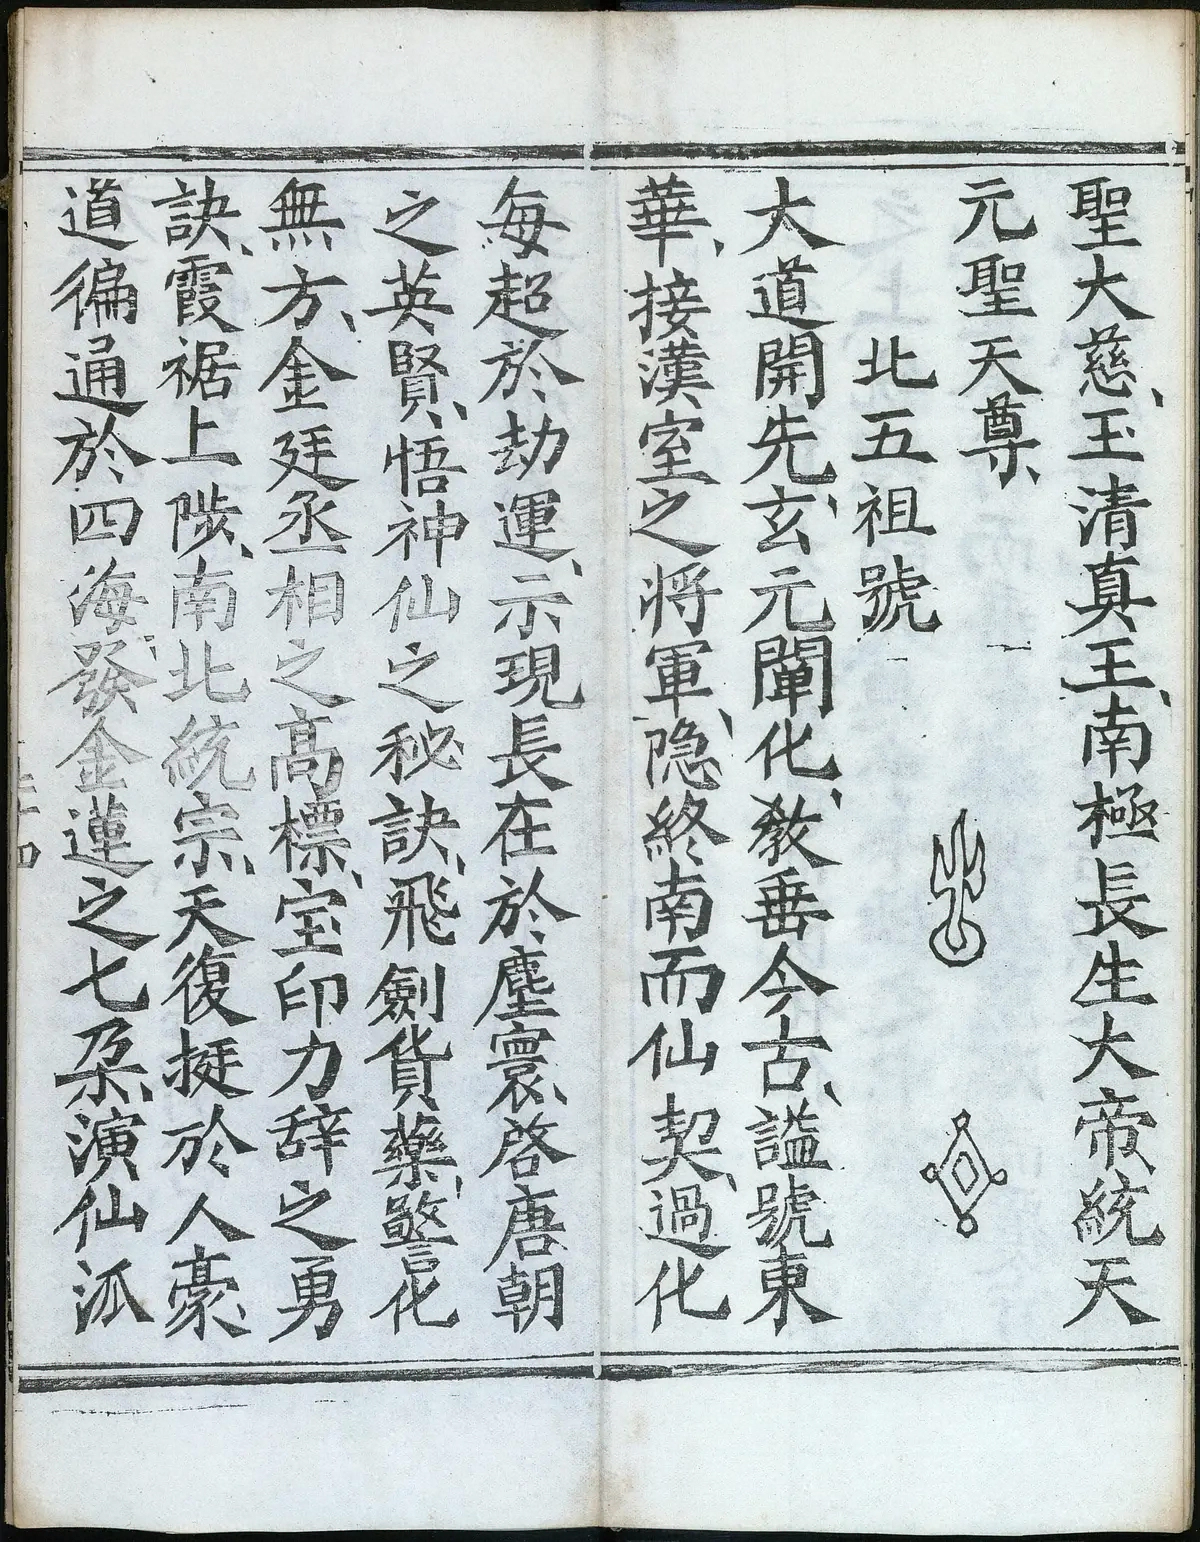 聖大慈、玉清真王、南極長生大帝、統天
元聖天尊、
北五祖號
大道開先、玄元闡化、敎垂今古、謚號東
華、接漢室之将軍、隐終南而仙契、過化
每超於劫運、示現長在於塵寰、啓唐朝
之英賢、悟神仙之秘訣、飛劍貨藥、警化
無方、金廷丞相之高標、宝印力辞之勇
訣、霞裾上陟、南北統宗、天復挺於人豪、
道徧通於四海、發金蓮之七朶、演仙派